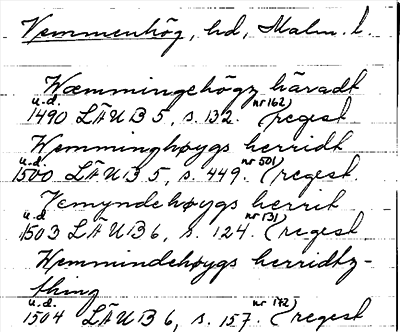 Vemmenhög, hd, Malm. l.
Wæmmingehögz häradt
u.d. nr 162)
1490 LÄUB 5, s. 132. (regest
Wemminghøygs herridt
u.d. nr 501)
1500 LÄUB 5, s. 449. (regest
Vemyndehøygs herrit
u.d. nr 131)
1503 LÄUB 6, s. 124. (regest
Wemmindehøygs herridtz-
thing
u.d. nr 172)
1504 LÄUB 6, s. 157. (regest